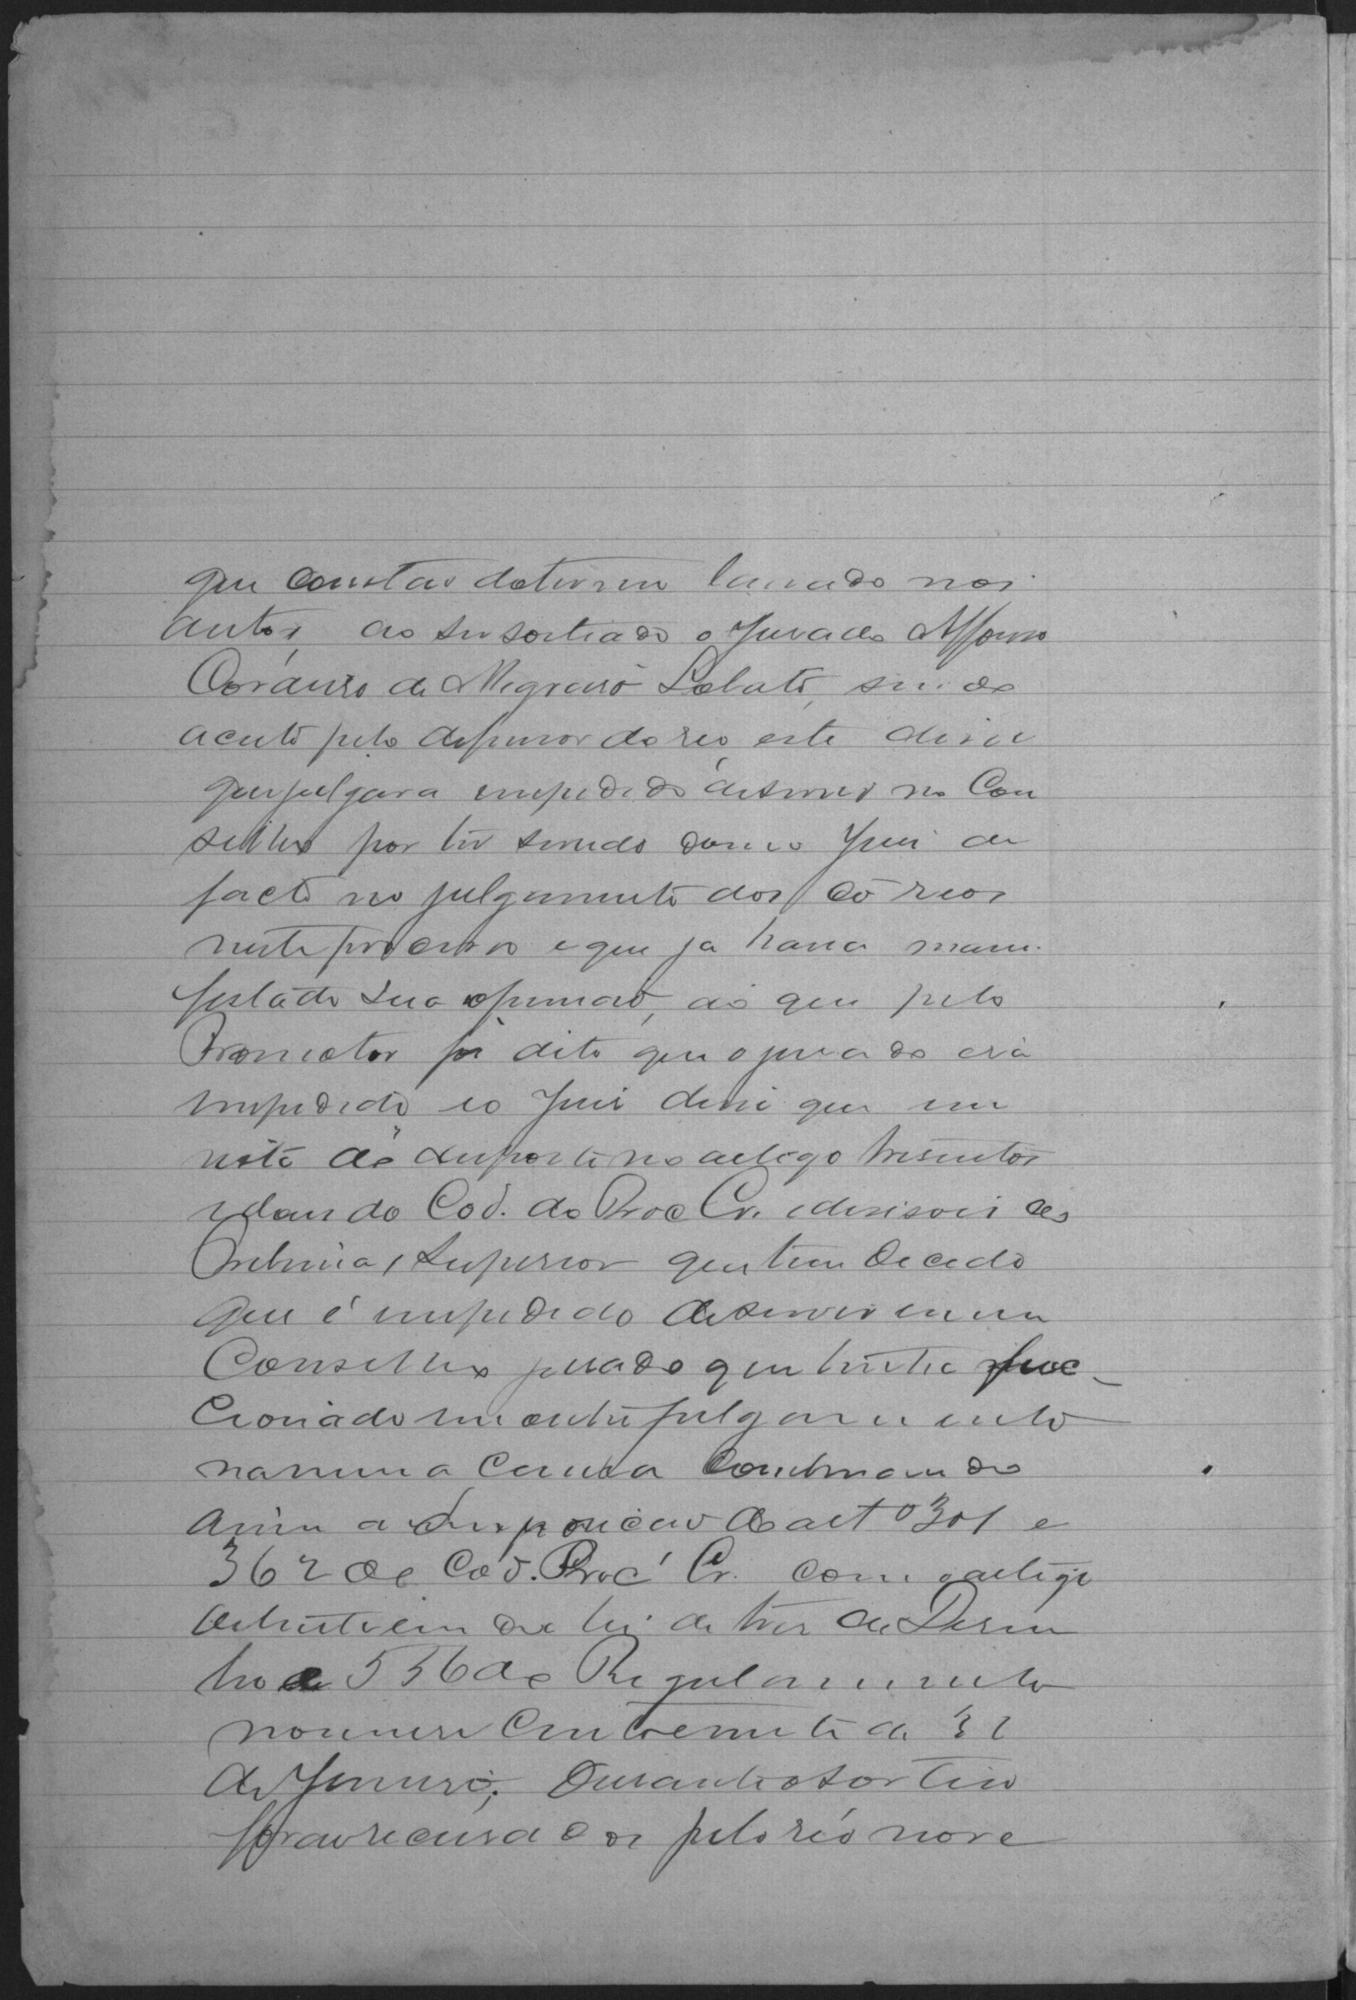 que constão do termo lançado nos
autos, ao ser sorteado o Jurado Affonso
de Negreiros Lobato, sendo
aceito pelo defensor do reo este disse
que julgava impedido de servir no Con
selho por ter servido como Juiz de
facto no julgamento dos có reos
neste processo e que ja havia mani
festado sua opinião, ao que pelo
Promotor foi dito que o jurado era
impedido e o Juiz disse que em
vista do disposto no artigo tresentos
do Cod. do Proc Cr. e decisões do
Tribunal Superior que tem decedido
que é impedido de servir em um
Conselho jurado que tenha func
cionado em outro julgamento
na mesma causa combinando
assim a disposição do art º 301 e
362 do Cod. Proc Cr. com o artigo
da lei de tres de Desem
bro e 336 do Regulamento
numero cento e vinte de 31
de Janeiro; Durante o sorteio
forão recusados pelo réo nove